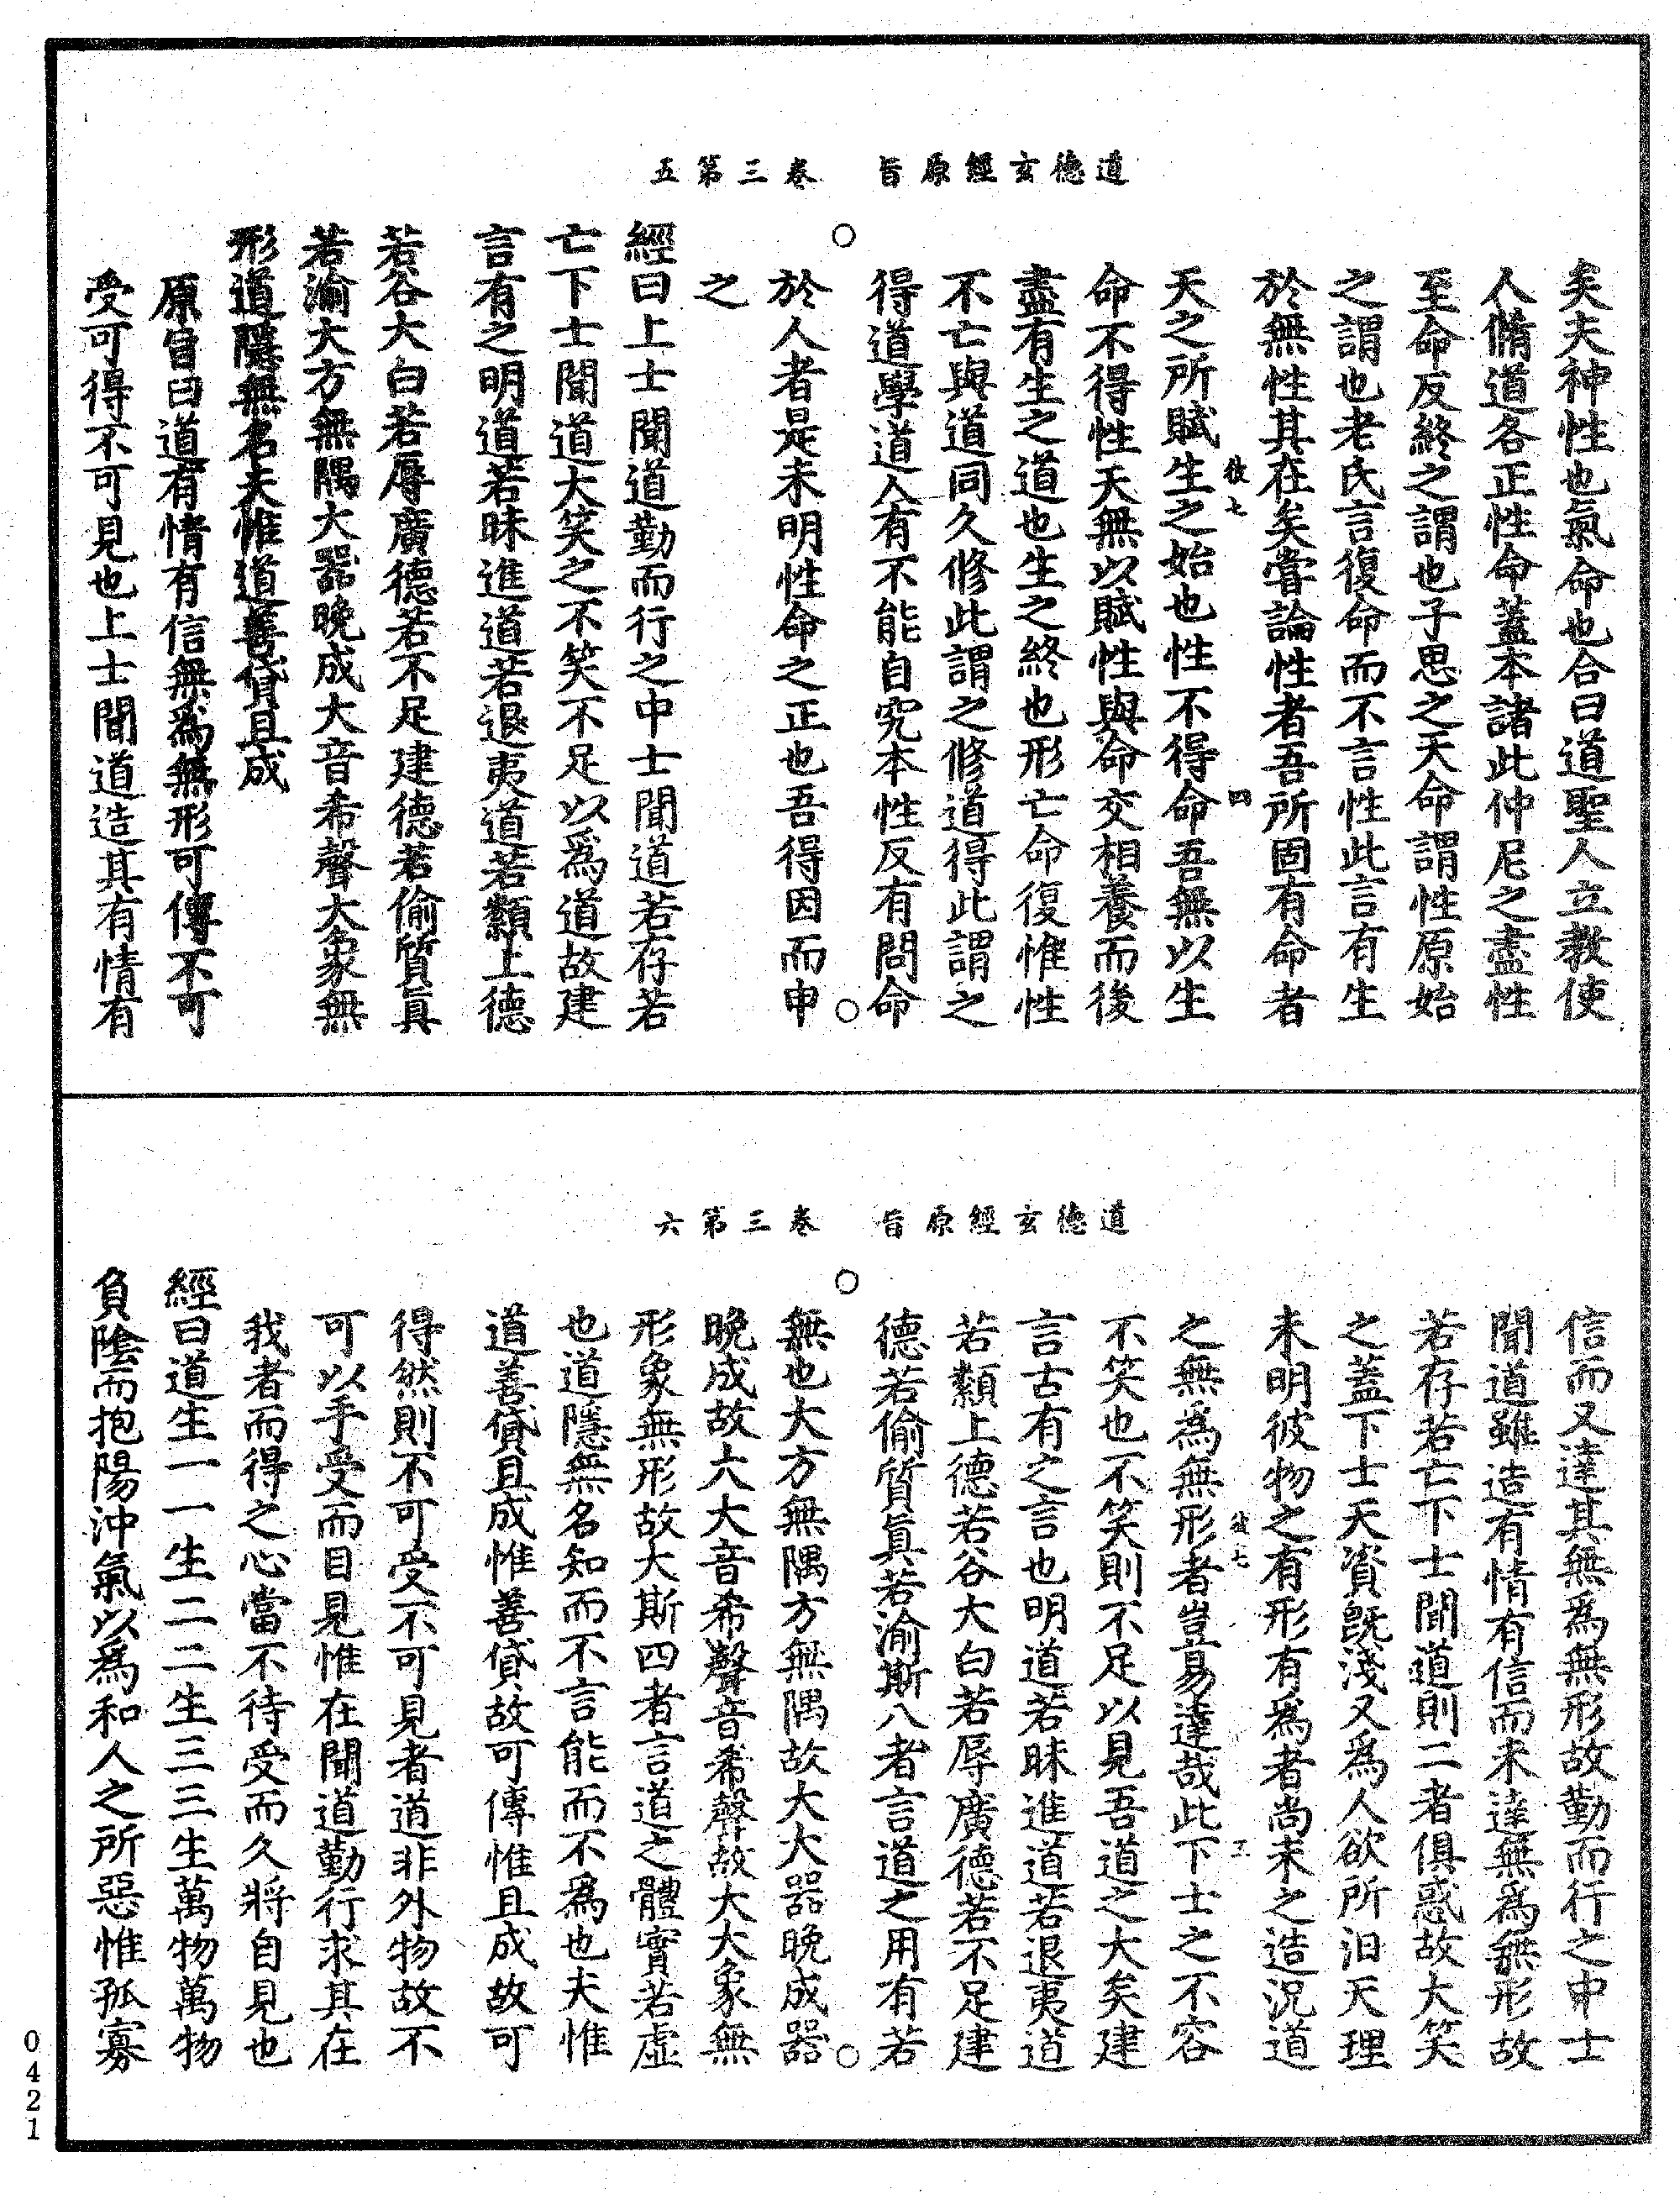 道德玄經原旨　卷三第五
矣夫神性也氣命也合曰道聖人立教使
人脩道各正性命蓋本諸此仲尼之盡性
至命反終之謂也子思之天命謂性原始
之謂也老氏言復命而不言性此言有生
於無性其在矣嘗論性者吾所固有命者
天之所賦生之始也性不得命吾無以生
命不得性天無以賦性與命交相養而後
盡有生之道也生之終也形亡命復惟性
不亡與道同久修此謂之修道得此謂之
得道學道人有不能自究本性反有問命
於人者是未明性命之正也吾得因而申
之
經曰上士聞道勤而行之中士聞道若存若
亡下士聞道大笑之不笑不足以爲道故建
言有之明道若昧進道若退夷道若纇上德
若谷大白若辱廣德若不足建德若偷質眞
若渝大方無隅大器晚成大音希聲大象無
形道隱無名夫惟道善貸且成
原旨曰道有情有信無爲無形可傳不可
受可得不可見也上士聞道造其有情有
道德玄經原旨　卷三第六
信而又達其無爲無形故勤而行之中士
聞道雖造有情有信而未達無爲無形故
若存若亡下士聞道則二者俱惑故大笑
之蓋下士天資旣淺又爲人欲所汩天理
未明彼物之有形有爲者尚未之造況道
之無爲無形者豈易達哉此下士之不容
不笑也不笑則不足以見吾道之大矣建
言古有之言也明道若昧進道若退夷道
若纇上德若谷大白若辱廣德若不足建
德若偷質眞若渝斯八者言道之用有若
無也大方無隅方無隅故大大器晚成器
晚成故大大音希聲音希聲故大大象無
形象無形故大斯四者言道之體實若虛
也道隱無名知而不言能而不爲也夫惟
道善貸且成惟善貸故可傳惟且成故可
得然則不可受不可見者道非外物故不
可以手受而目見惟在聞道勤行求其在
我者而得之心當不待受而久將自見也
經曰道生一一生二二生三三生萬物萬物
負陰而抱陽沖氣以爲和人之所惡惟孤寡
0421